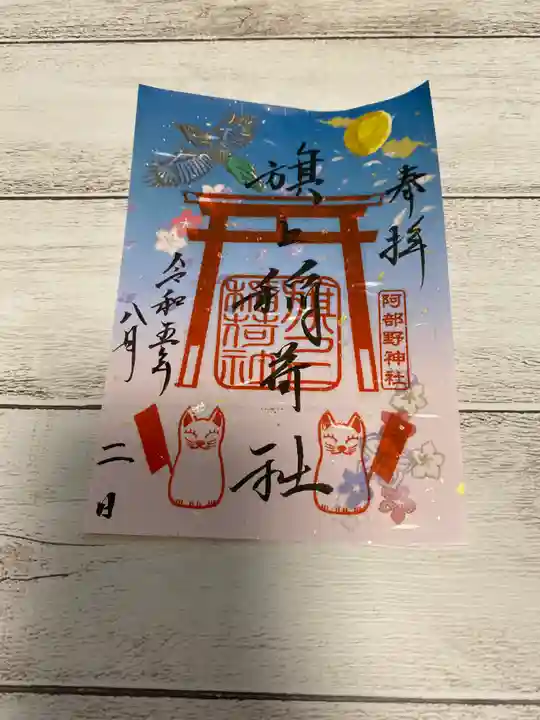 奉拝
阿部野神社
旗上稲荷社
旗上
稲荷神
令和五年
八月
二日